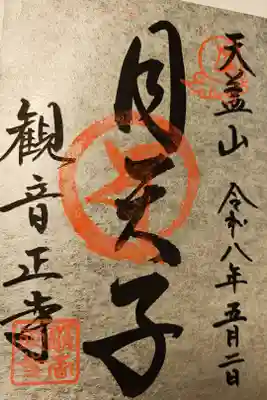 天蓋山 令和八年五月二日
月天子
観音正寺